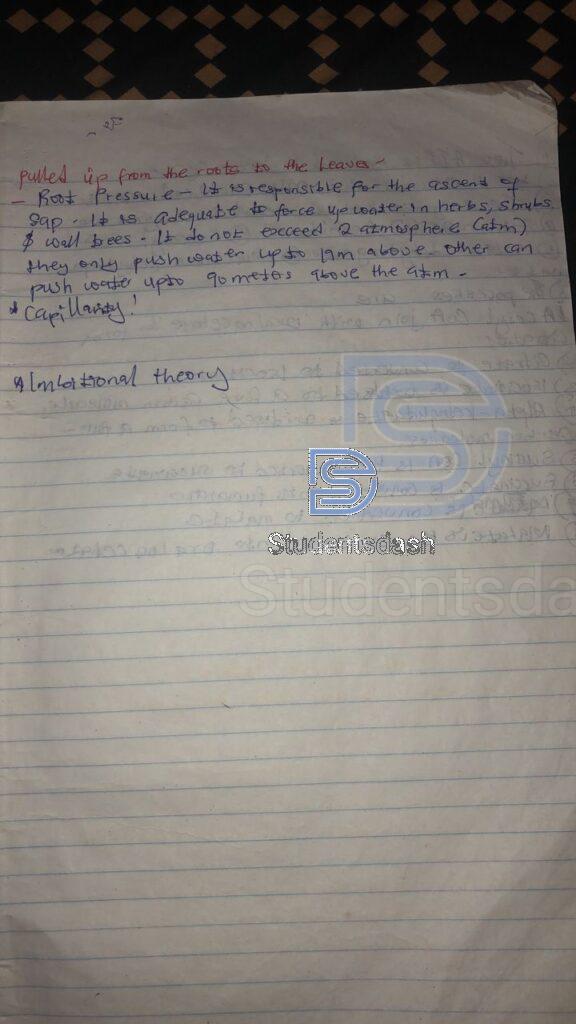 pulled up from the roots to the leaves -
- Root Pressure - It is responsible for the ascend of
sap - It is adequate to force up water in herbs, shrubs
& wall trees - It do not exceed 2 atmosphere (atm)
they only push water up to 19m above. Other can
push water upto 90 meters above the atm -
* Capillarity!
* Imbitional theory
DS
Studentsdash
Studentsda